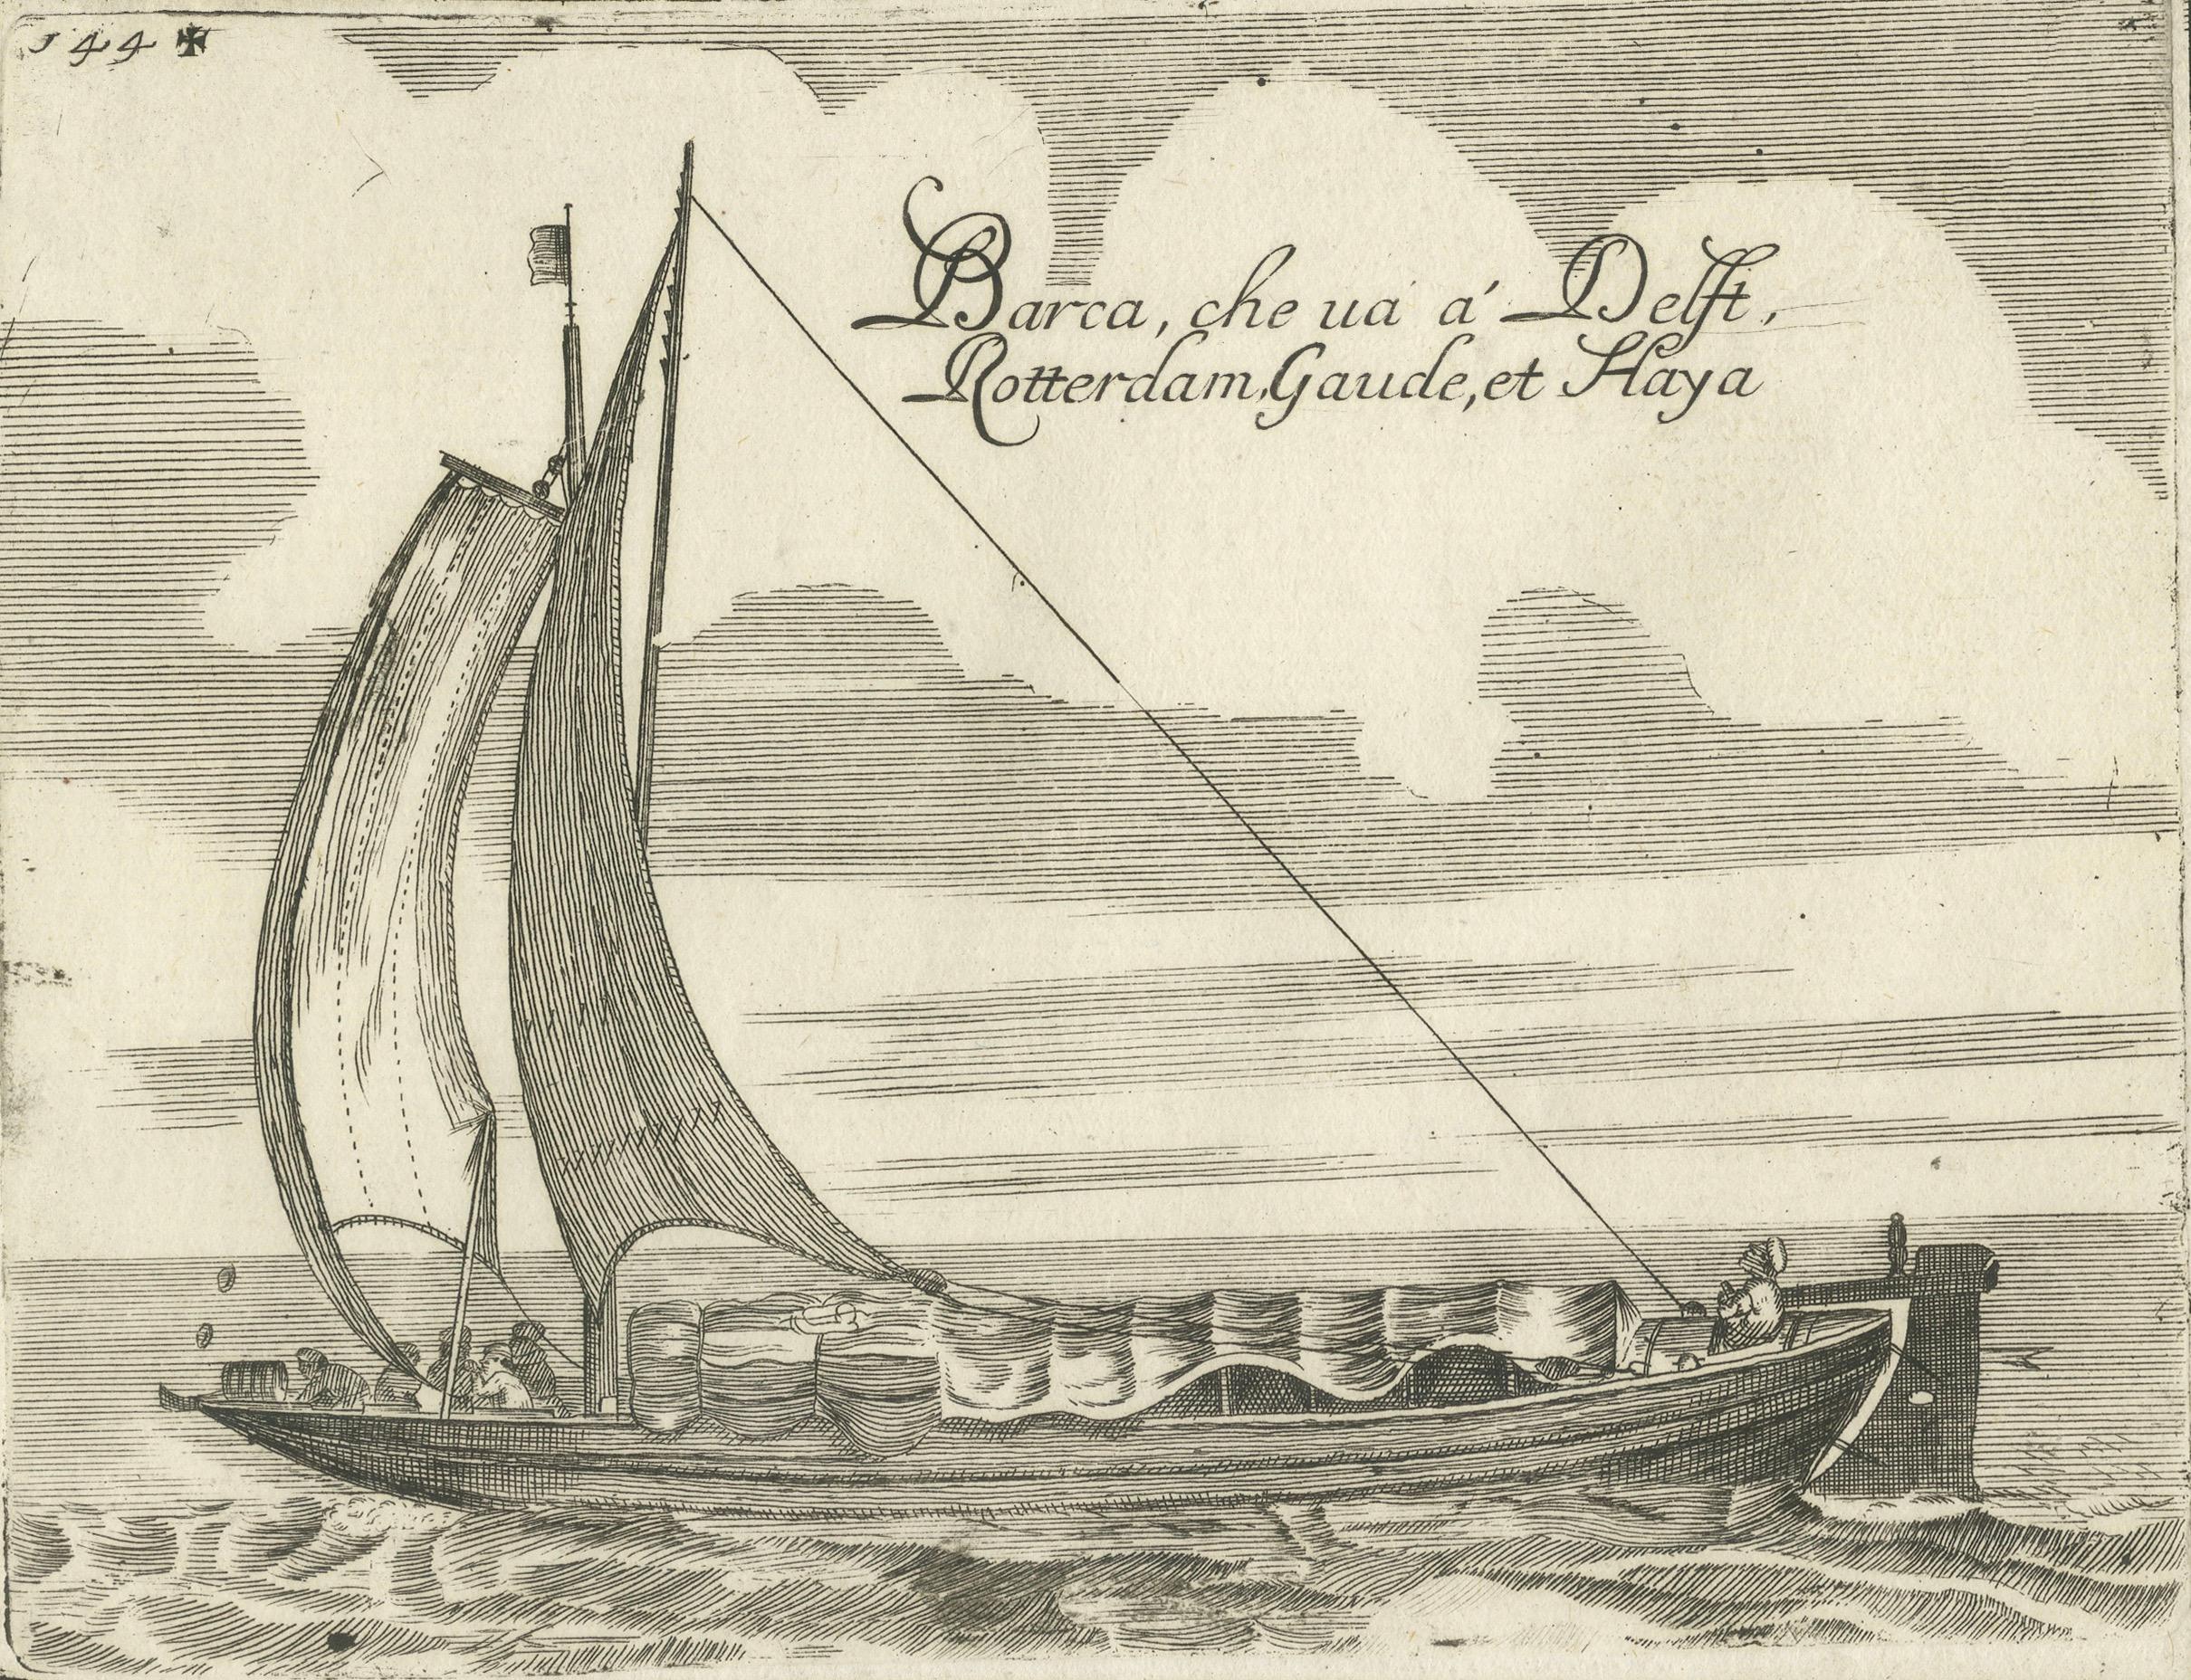 144 ✠
Barca, che uà á Delft,
Rotterdam, Gaude, et Haya